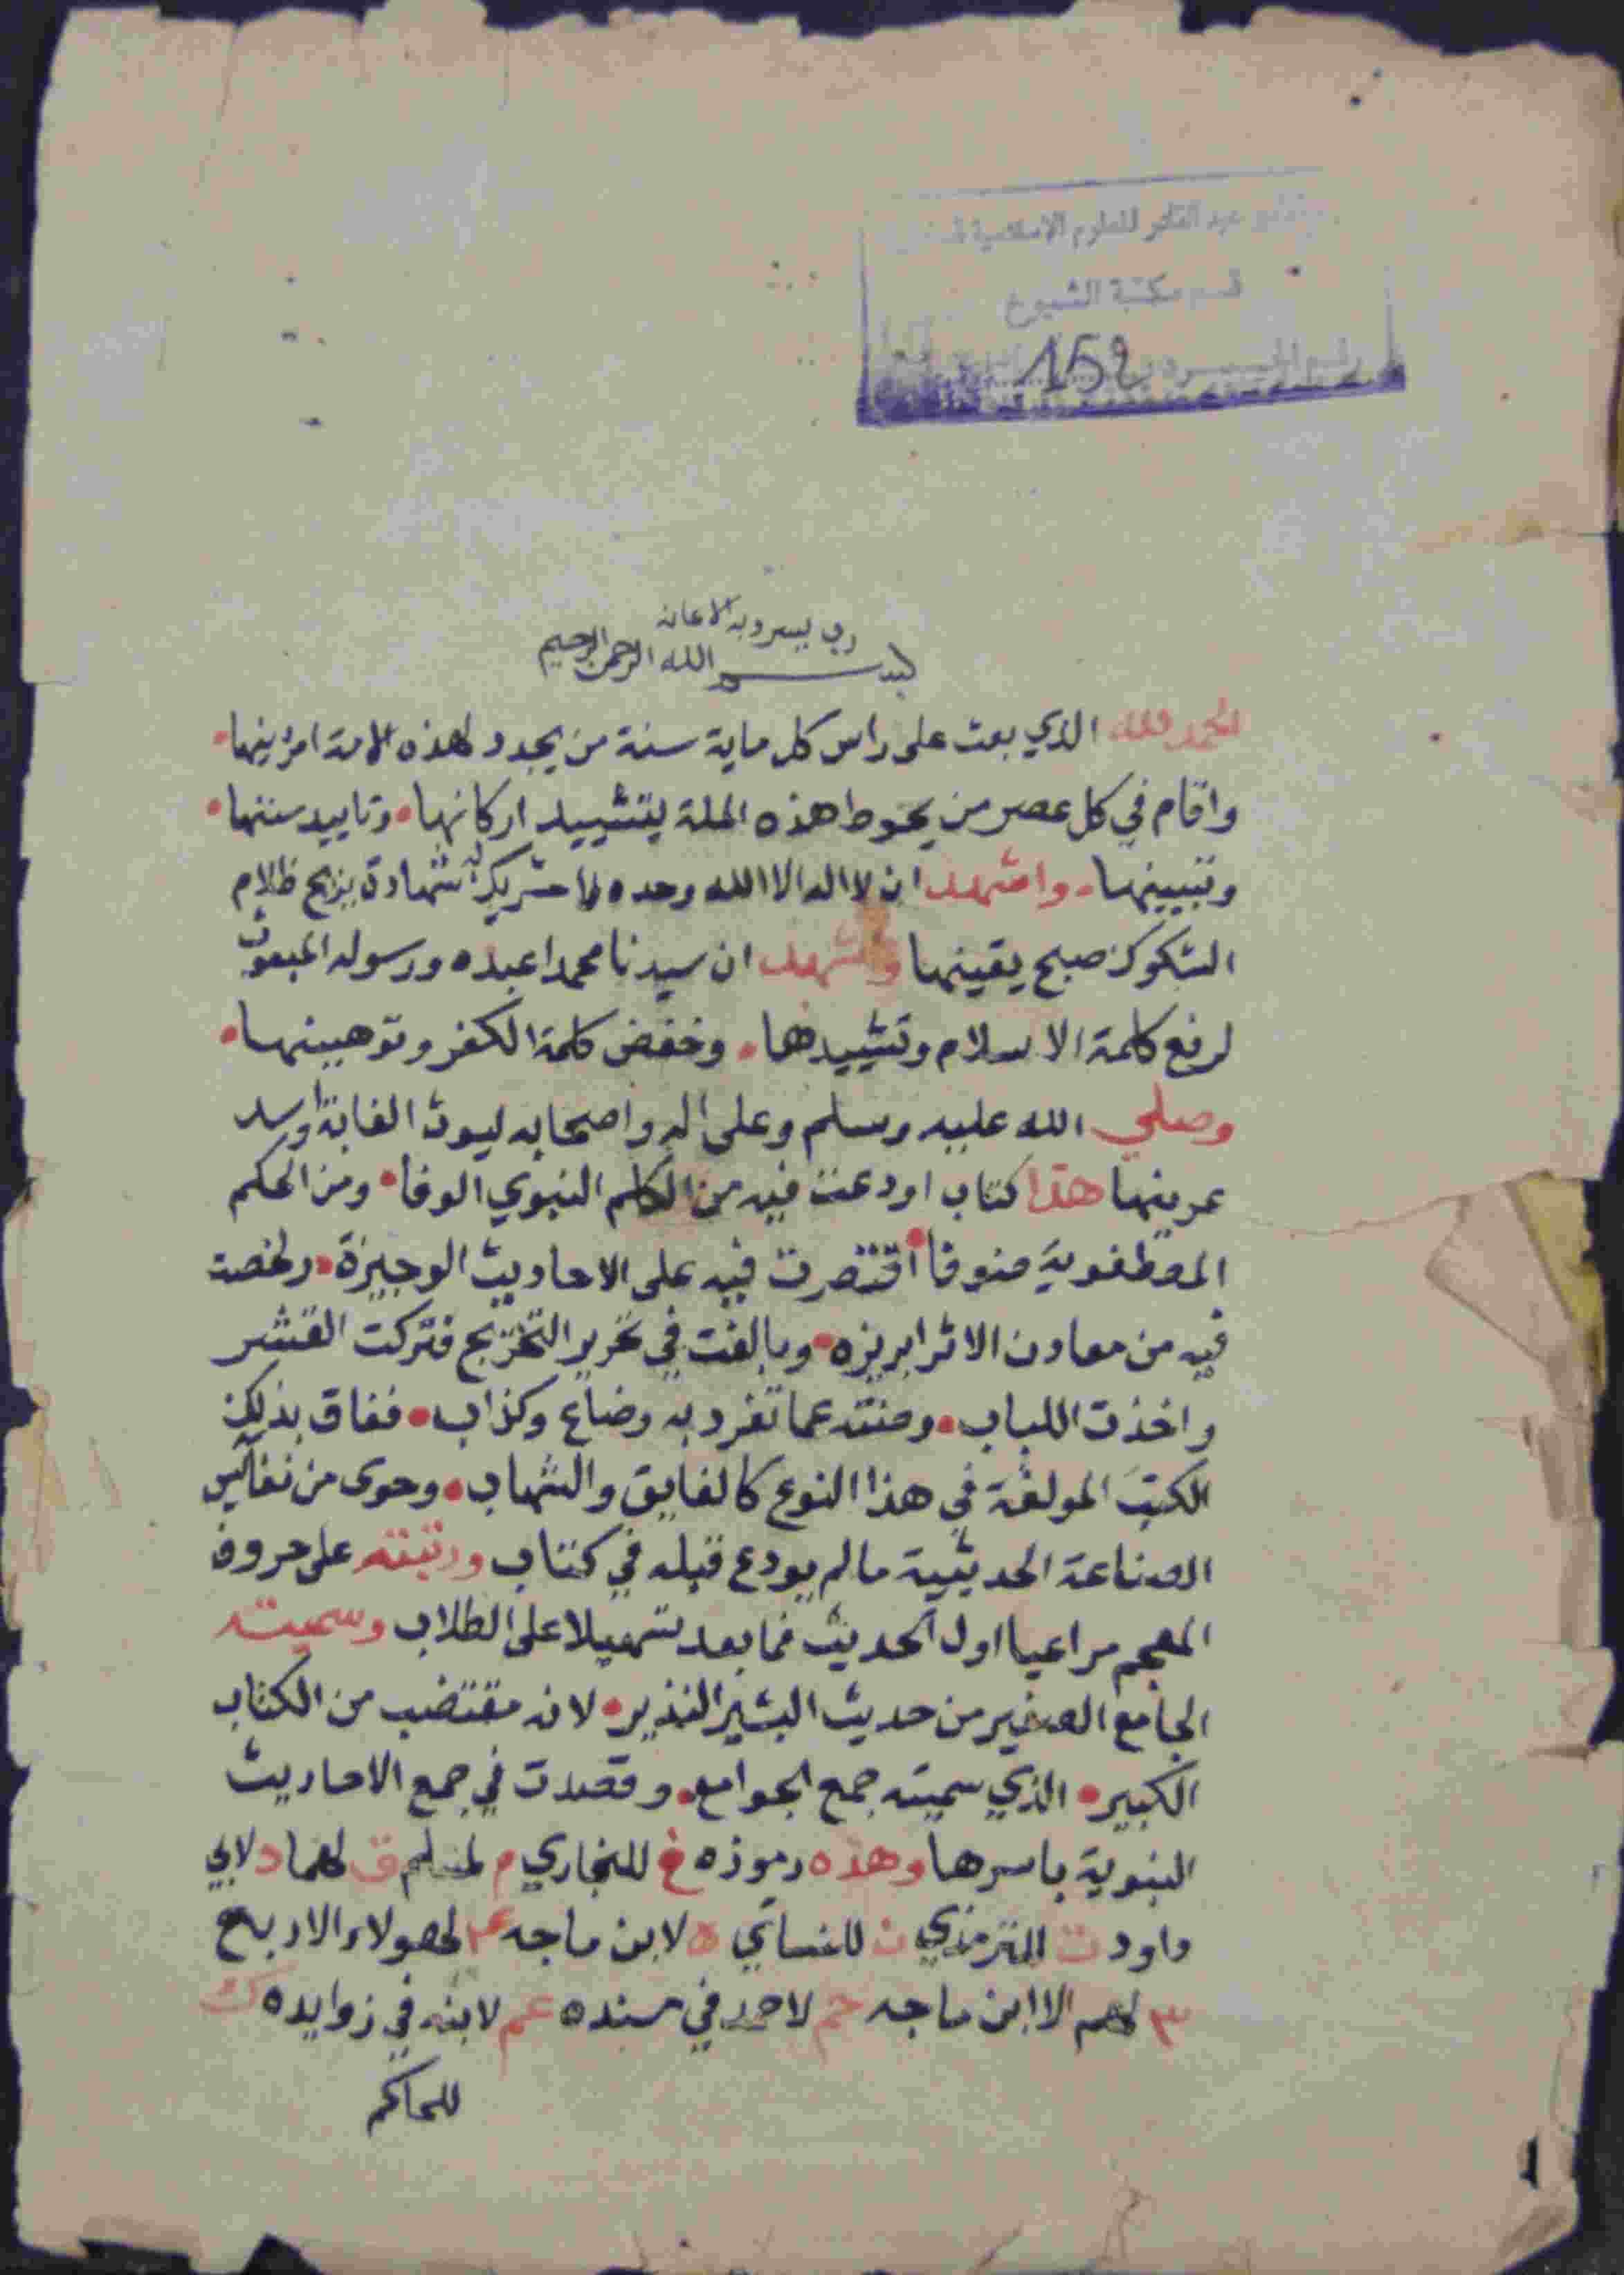 عبد القادر للعلوم الاسلامية
قسم مكتبة الشيوخ
152
رب يسر وبه الاعانه
بسم الله الرحمن الرحيم
الحمد لله الذي بعث على راس كل ماية سنة من يجدد لهذه الامة امر دينها
واقام في كل عصر من يحوط هذه الملة بتشييد اركانها وتاييد سننها
وتبيينها واشهد ان لا اله الا الله وحده لا شريك له شهادة يزيح ظلام
الشكوك صبح يقينها واشهد ان سيدنا محمدا عبده ورسوله المبعوث
لرفع كلمة الاسلام وتشييدها وخفض كلمة الكفر وتوهينها
وصلي الله عليه وسلم وعلى اله واصحابه ليوث الغابة واسد
عرينها هذا كتاب اودعت فيه من الكلم النبوي الوفا ومن الحكم
المصطفوية صنوفا اقتصرت فيه على الاحاديث الوجيزة ولخصت
فيه من معادن الاثر ابريزه وبالغت في تحرير التخريج فتركت القشر
واخذت اللباب وصنته عما تفرد به وضاع وكذاب ففاق بذلك
الكتب المولفة في هذا النوع كالفايق والشهاب وحوى من نفائس
الصناعة الحديثية ما لم يودع قبله في كتاب ورتبته على حروف
المعجم مراعيا اول الحديث فما بعد تسهيلا على الطلاب وسميته
الجامع الصغير من حديث البشير النذير لانه مقتضب من الكتاب
الكبير الذي سميته جمع الجوامع وقصدت في جمع الاحاديث
النبوية باسرها وهذه رموزه خ للبخاري م لمسلم ق لهما د لابي
داود ت للترمذي ن للنسائي ه لابن ماجه ٤ لهولاء الاربع
٣ لهم الا ابن ماجه حم لاحمد في مسنده عم لابنه في زوايده ك
للحاكم
1